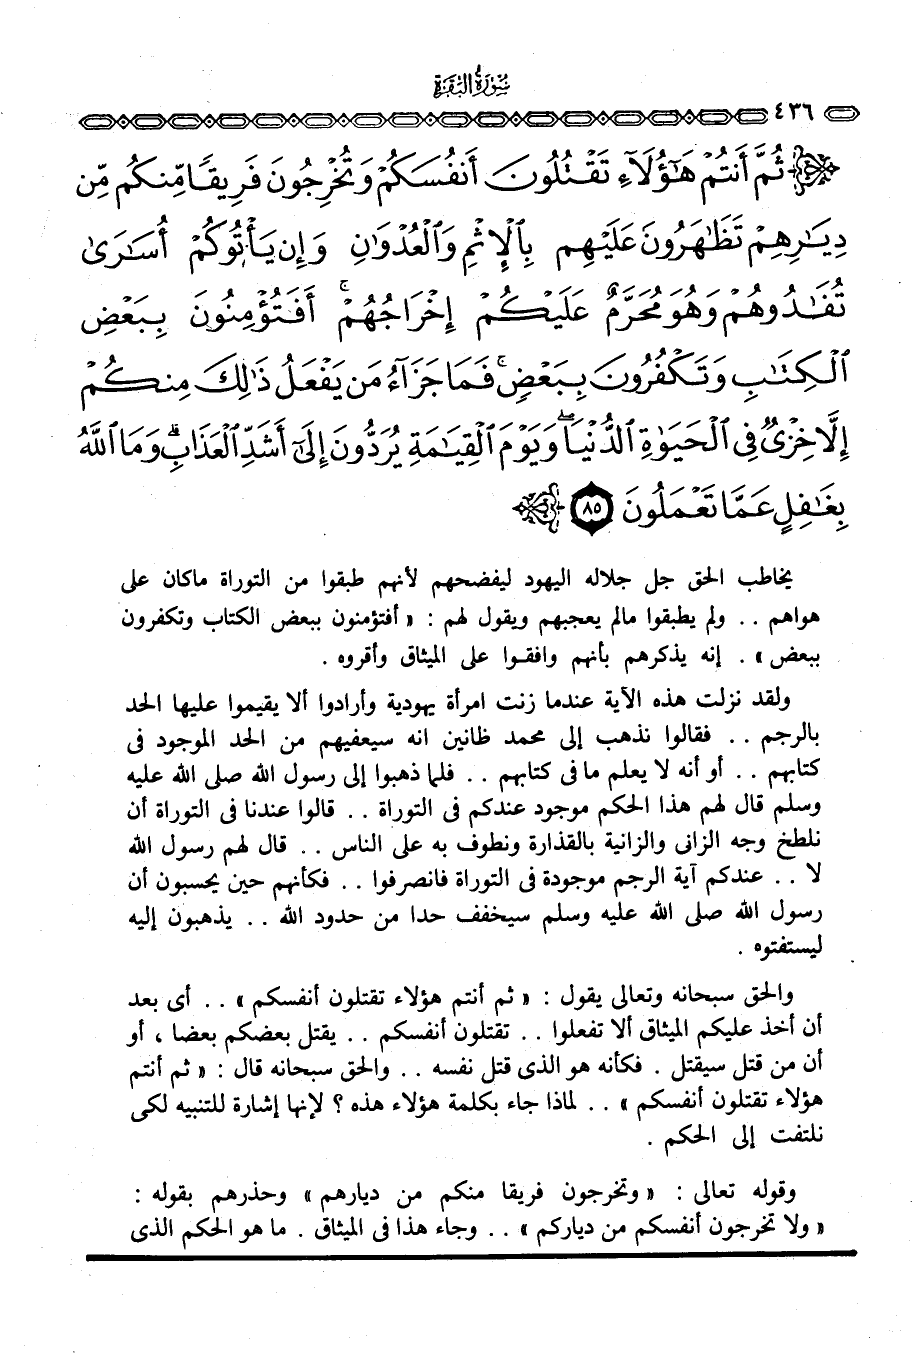 سُورَةُ البَقَرَة
٤٣٦
ثُمَّ أَنتُمْ هَٰٓؤُلَآءِ تَقْتُلُونَ أَنفُسَكُمْ وَتُخْرِجُونَ فَرِيقًا مِّنكُم مِّن
دِيَٰرِهِمْ تَظَٰهَرُونَ عَلَيْهِم بِٱلْإِثْمِ وَٱلْعُدْوَٰنِ وَإِن يَأْتُوكُمْ أُسَٰرَىٰ
تُفَٰدُوهُمْ وَهُوَ مُحَرَّمٌ عَلَيْكُمْ إِخْرَاجُهُمْ ۚ أَفَتُؤْمِنُونَ بِبَعْضِ
ٱلْكِتَٰبِ وَتَكْفُرُونَ بِبَعْضٍ ۚ فَمَا جَزَآءُ مَن يَفْعَلُ ذَٰلِكَ مِنكُمْ
إِلَّا خِزْىٌ فِى ٱلْحَيَوٰةِ ٱلدُّنْيَا ۖ وَيَوْمَ ٱلْقِيَٰمَةِ يُرَدُّونَ إِلَىٰٓ أَشَدِّ ٱلْعَذَابِ ۗ وَمَا ٱللَّهُ
بِغَٰفِلٍ عَمَّا تَعْمَلُونَ ٨٥
يخاطب الحق جل جلاله اليهود ليفضحهم لأنهم طبقوا من التوراة ماكان على
هواهم .. ولم يطبقوا مالم يعجبهم ويقول لهم : « أفتؤمنون ببعض الكتاب وتكفرون
ببعض » . إنه يذكرهم بأنهم وافقوا على الميثاق وأقروه .
ولقد نزلت هذه الآية عندما زنت امرأة يهودية وأرادوا ألا يقيموا عليها الحد
بالرجم .. فقالوا نذهب إلى محمد ظانين انه سيعفيهم من الحد الموجود فى
كتابهم .. أو أنه لا يعلم ما فى كتابهم .. فلما ذهبوا إلى رسول الله صلى الله عليه
وسلم قال لهم هذا الحكم موجود عندكم فى التوراة .. قالوا عندنا فى التوراة أن
نلطخ وجه الزانى والزانية بالقذارة ونطوف به على الناس .. قال لهم رسول الله
لا .. عندكم آية الرجم موجودة فى التوراة فانصرفوا .. فكأنهم حين يحسبون أن
رسول الله صلى الله عليه وسلم سيخفف حدا من حدود الله .. يذهبون إليه
ليستفتوه .
والحق سبحانه وتعالى يقول : « ثم أنتم هؤلاء تقتلون أنفسكم » .. أى بعد
أن أخذ عليكم الميثاق ألا تفعلوا .. تقتلون أنفسكم .. يقتل بعضكم بعضا ، أو
أن من قتل سيقتل . فكأنه هو الذى قتل نفسه .. والحق سبحانه قال : « ثم أنتم
هؤلاء تقتلون أنفسكم » .. لماذا جاء بكلمة هؤلاء هذه ؟ لإنها إشارة للتنبيه لكى
نلتفت إلى الحكم .
وقوله تعالى : « وتخرجون فريقا منكم من ديارهم » وحذرهم بقوله :
« ولا تخرجون أنفسكم من دياركم » .. وجاء هذا فى الميثاق . ما هو الحكم الذى